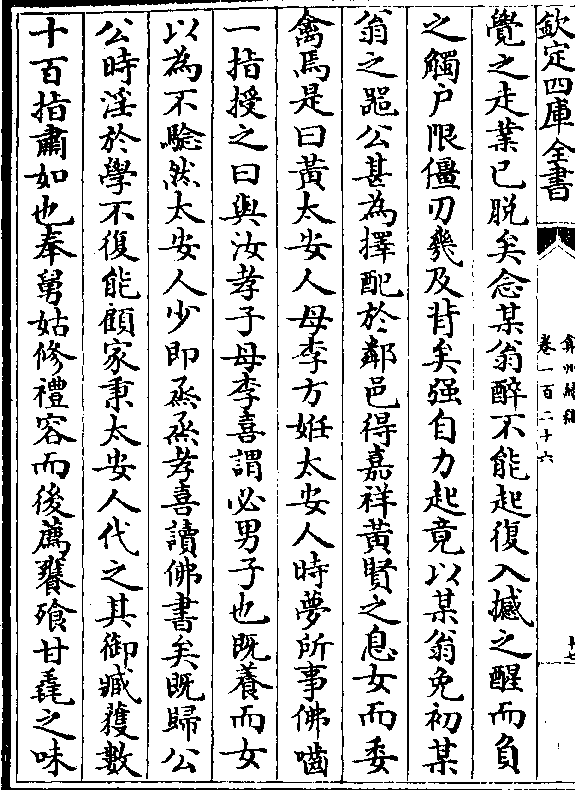 欽定四庫全書
弇州續稿
卷一百二十六
覺之走業已脫矣念某翁醉不能起復入撼之醒而負
之觸户限僵刃幾及背矣强自力起竟以某翁免初某
翁之噐公甚為擇配於鄰邑得嘉祥黄賢之息女而委
禽焉是曰黄太安人母李方姙太安人時夢所事佛囓
一指授之曰與汝孝子母李喜謂必男子也既養而女
以為不驗然太安人少即烝烝孝喜讀佛書矣既歸公
公時淫於學不復能顧家秉太安人代之其御臧獲數
十百指肅如也奉舅姑修禮容而後薦饔飱甘毳之味